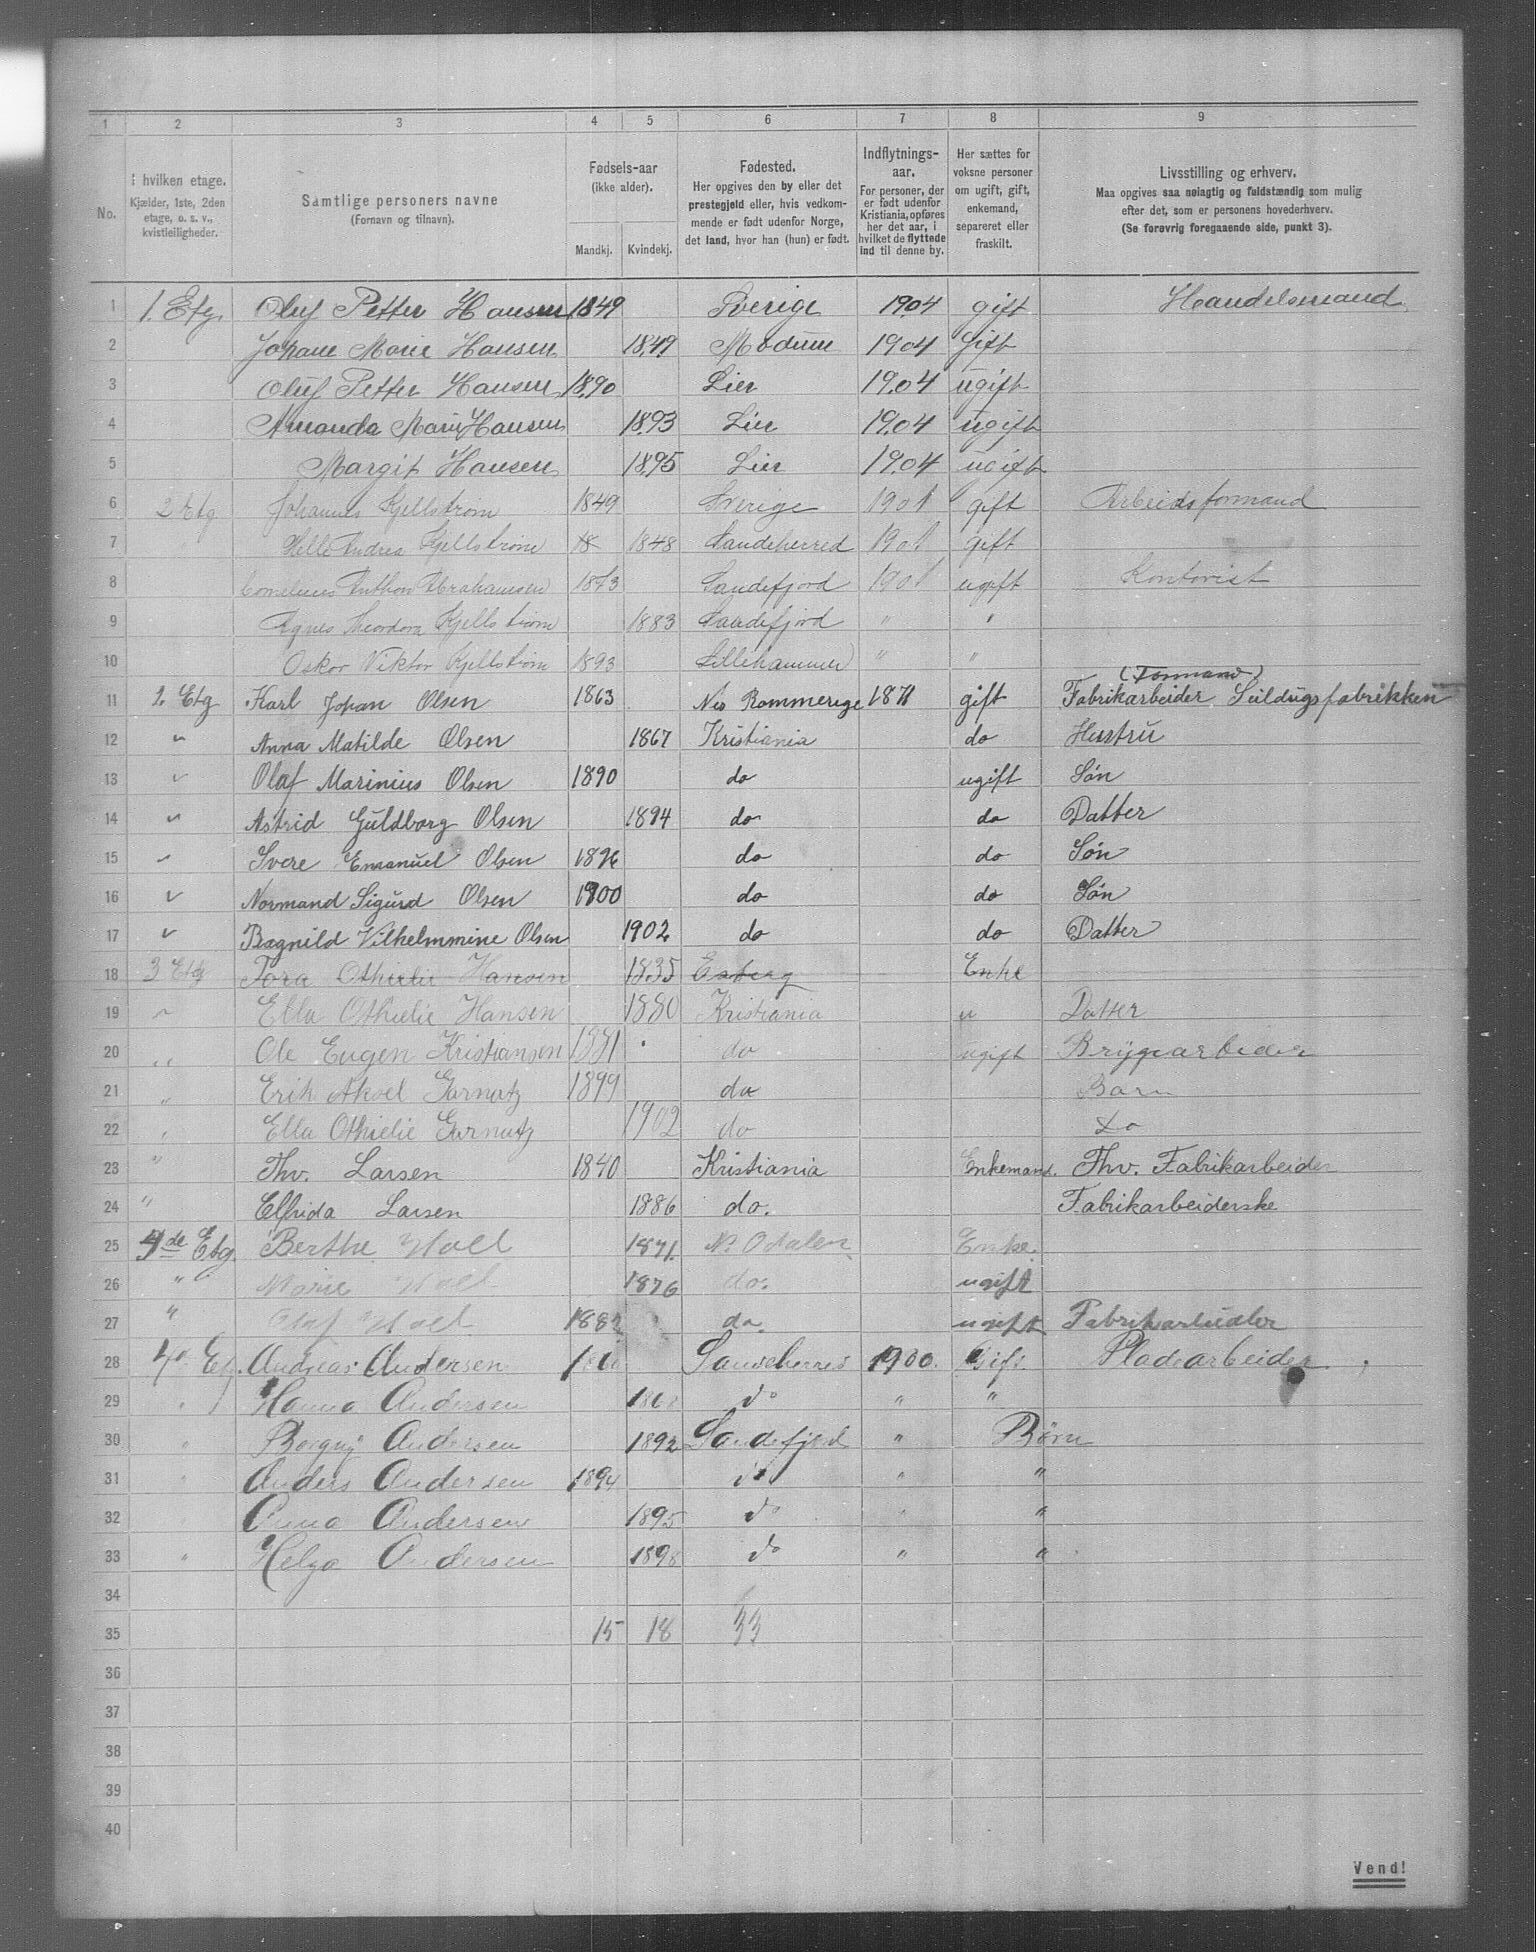 1 2 3 4 5 6 7 8 9
No.
I hvilken etage.
Kjælder, 1ste, 2den
etage, o. s. v.,
kvistleiligheder.
Samtlige personers navne
(Fornavn og tilnavn).
Fødsels-aar
(ikke alder).
Mandkj. Kvindekj.
Fødested.
Her opgives den by eller det
prestegjeld eller, hvis vedkom-
mende er født udenfor Norge,
det land, hvor han (hun) er født.
Indflytnings-
aar.
For personer, der
er født udenfor
Kristiania, opføres
her det aar, i
hvilket de flyttede
ind til denne by.
Her sættes for
voksne personer
om ugift, gift,
enkemand,
separeret eller
fraskilt.
Livsstilling og erhverv.
Maa opgives saa nøiagtig og fuldstændig som mulig
efter det, som er personens hovederhverv.
(Se forøvrig foregaaende side, punkt 3).
1 1. Etg. Oluf Petter Hansen 1849 Sverige 1904 gift Handelsmand
2 Johane Marie Hansen 1849 Modum 1904 Gift
3 Oluf Petter Hansen 1890 Lier 1904 ugift
4 Amanda Marie Hansen 1893 Lier 1904 ugift
5 Margit Hansen 1895 Lier 1904 ugift
6 2 Etg Johannes Kjellstrøm 1849 Sverige 1901 gift Arbeidsformand
7 Helle Andrea Kjellstrøm 18 1848 Sandeherred 1901 gift
8 Cornelius Anthon Abrahamsen 1873 Sandefjord 1901 ugift Kontorist
9 Agnes Theodora Kjellstrøm 1883 Sandefjord " "
10 Oskar Viktor Kjellstrøm 1893 Lillehammer " "
(Formand)
11 2. Etg Karl Johan Olsen 1863 Nes Rommerige 1871 gift Fabrikarbeider Seildugsfabrikken
12 " Anna Matilde Olsen 1867 Kristiania do Hustru
13 " Olaf Marinius Olsen 1890 do ugift Søn
14 " Astrid Guldborg Olsen 1894 do do Datter
15 " Svere Emanuel Olsen 1896 do do Søn
16 " Normand Sigurd Olsen 1900 do do Søn
17 " Ragnild Vilhelmmine Olsen 1902 do do Datter
18 3 Etg Tora Othielie Hansen 1835 Enke
19 " Ella Othielie Hansen 1880 Kristiania u Datter
20 " Ole Eugen Kristiansen 1881 do ugift Bryggearbeider
21 " Erik Aksel Garnatz 1899 do Barn
22 " Ella Othielie Garnatz 1902 do do
23 " Thv. Larsen 1840 Kristiania Enkemand. Thv. Fabrikarbeider
24 " Elfrida Larsen 1886 do. Fabrikarbeiderske
25 4de Etg Berthe Holt 1871. N. Odalen Enke.
26 " Marie Holt 1876 do. ugift
27 " Olaf Holt 1882 do. ugift Fabrikarbeider
28 4de Et. Andreas Andersen Sandeherred 1900. Gift Pladsarbeider
29 " Hanna Andersen do " "
30 " Borgny Andersen 1892 Sandefjord " Børn
31 " Anders Andersen 1894 do " "
32 " Anna Andersen 1895 do " "
33 " Helga Andersen 1898 do " "
34
35 15 18 33
36
37
38
39
40
Vend!